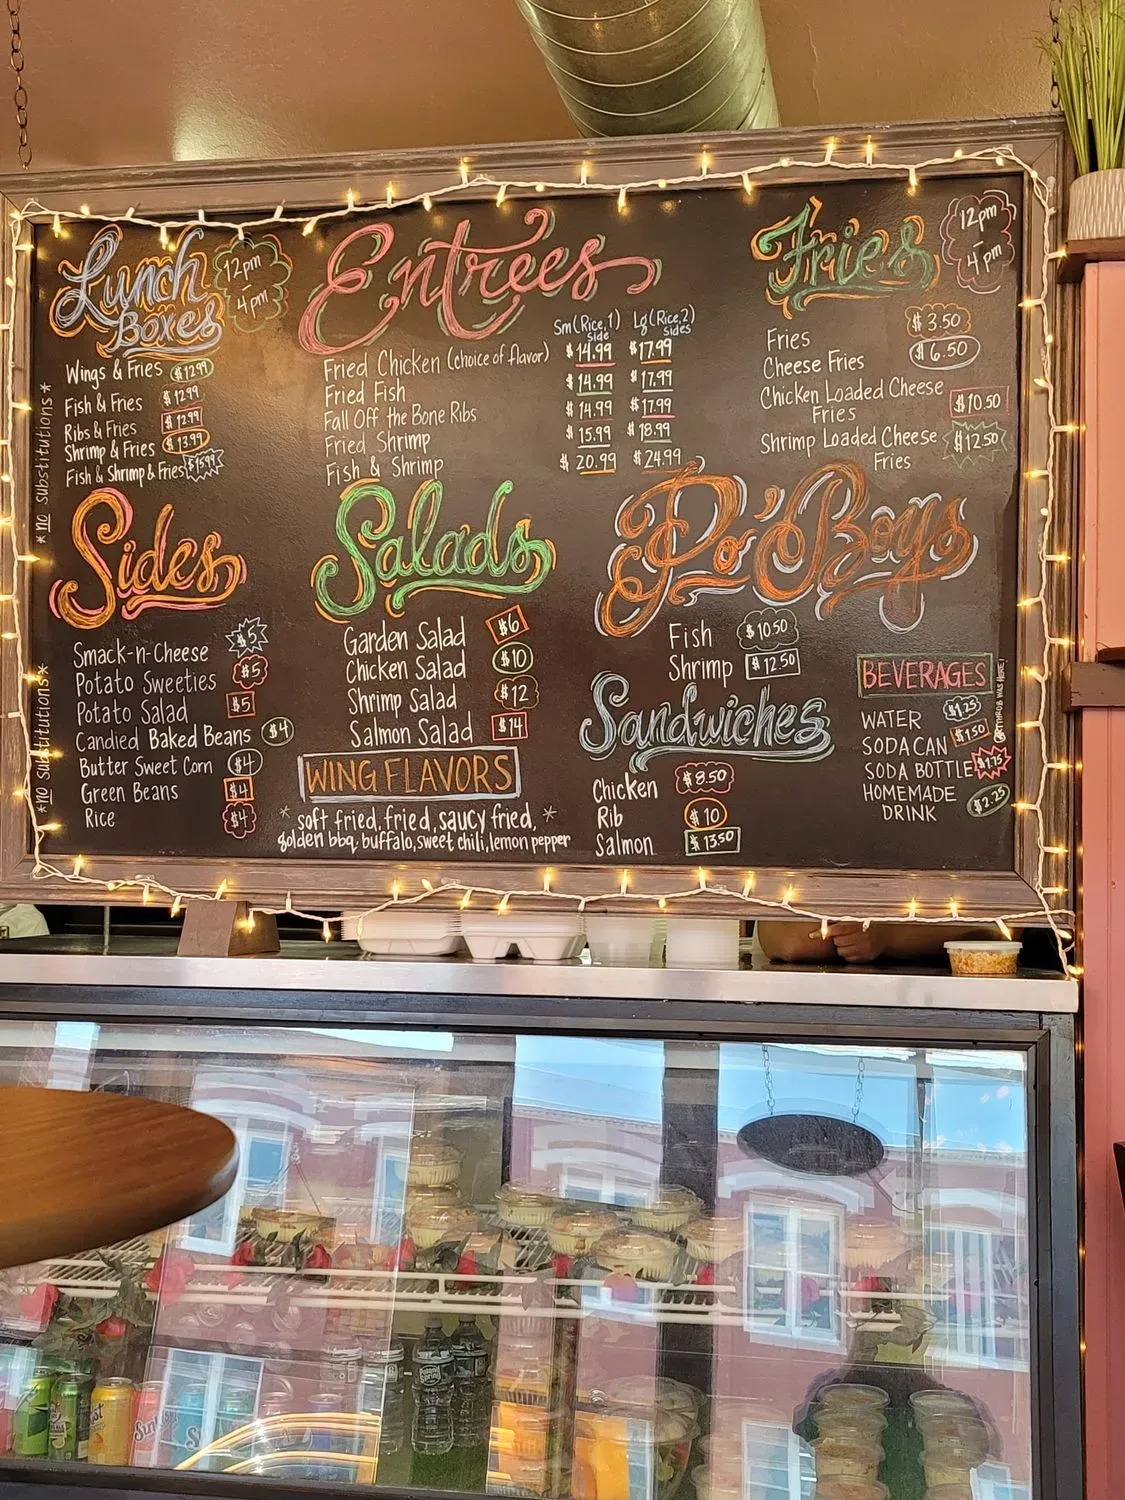 Lunch
Boxes
12pm
-
4pm
Wings & Fries $12.99
Fish & Fries $12.99
Ribs & Fries $12.99
Shrimp & Fries $13.99
Fish & Shrimp & Fries $15.99
*no substitutions*
Entrees
Sm(Rice,1 side) Lg(Rice,2 sides)
Fried Chicken (choice of flavor) $14.99 $17.99
Fried Fish $14.99 $17.99
Fall Off the Bone Ribs $14.99 $17.99
Fried Shrimp $15.99 $18.99
Fish & Shrimp $20.99 $24.99
Fries
12pm
-
4pm
Fries $3.50
Cheese Fries $6.50
Chicken Loaded Cheese
Fries $10.50
Shrimp Loaded Cheese
Fries $12.50
Sides
Smack-n-Cheese $5
Potato Sweeties $5
Potato Salad $5
Candied Baked Beans $4
Butter Sweet Corn $4
Green Beans $4
Rice $4
*no substitutions*
Salads
Garden Salad $6
Chicken Salad $10
Shrimp Salad $12
Salmon Salad $14
WING FLAVORS
* soft fried, fried, saucy fried, *
golden bbq, buffalo, sweet chili, lemon pepper
Po'Boys
Fish $10.50
Shrimp $12.50
Sandwiches
Chicken $8.50
Rib $10
Salmon $13.50
BEVERAGES
WATER $1.25
SODA CAN $1.50
SODA BOTTLE $1.75
HOMEMADE
DRINK $2.25
WAS HERE!